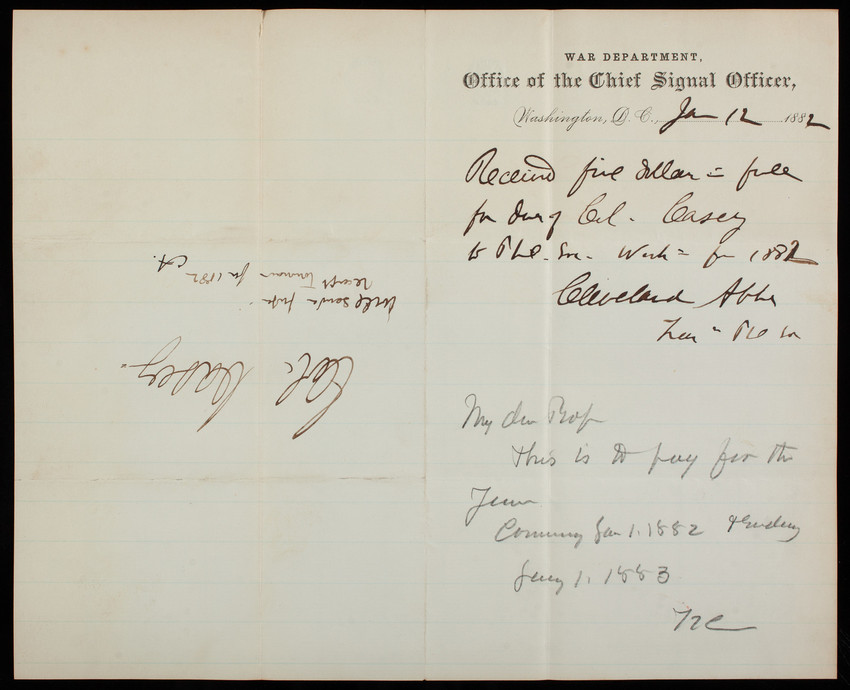 WAR DEPARTMENT,
Office of the Chief Signal Officer,
Washington, D. C., Jan 12 1882
Received five dollars = full
for dues of Col. Casey
to Phil. Soc. Wash = for 1882
Cleveland Abbe
Treas = Phil Soc
My dear Prof
This is to pay for the
Year
Coming Jan 1. 1882 & ending
Jany 1. 1883
TLC
Col. Casey.
Will send
receipt for 1882
CA.